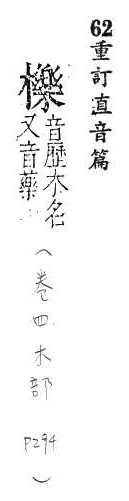 62重訂直音篇
櫟音歷木名又音藥
（卷四木部 P294）